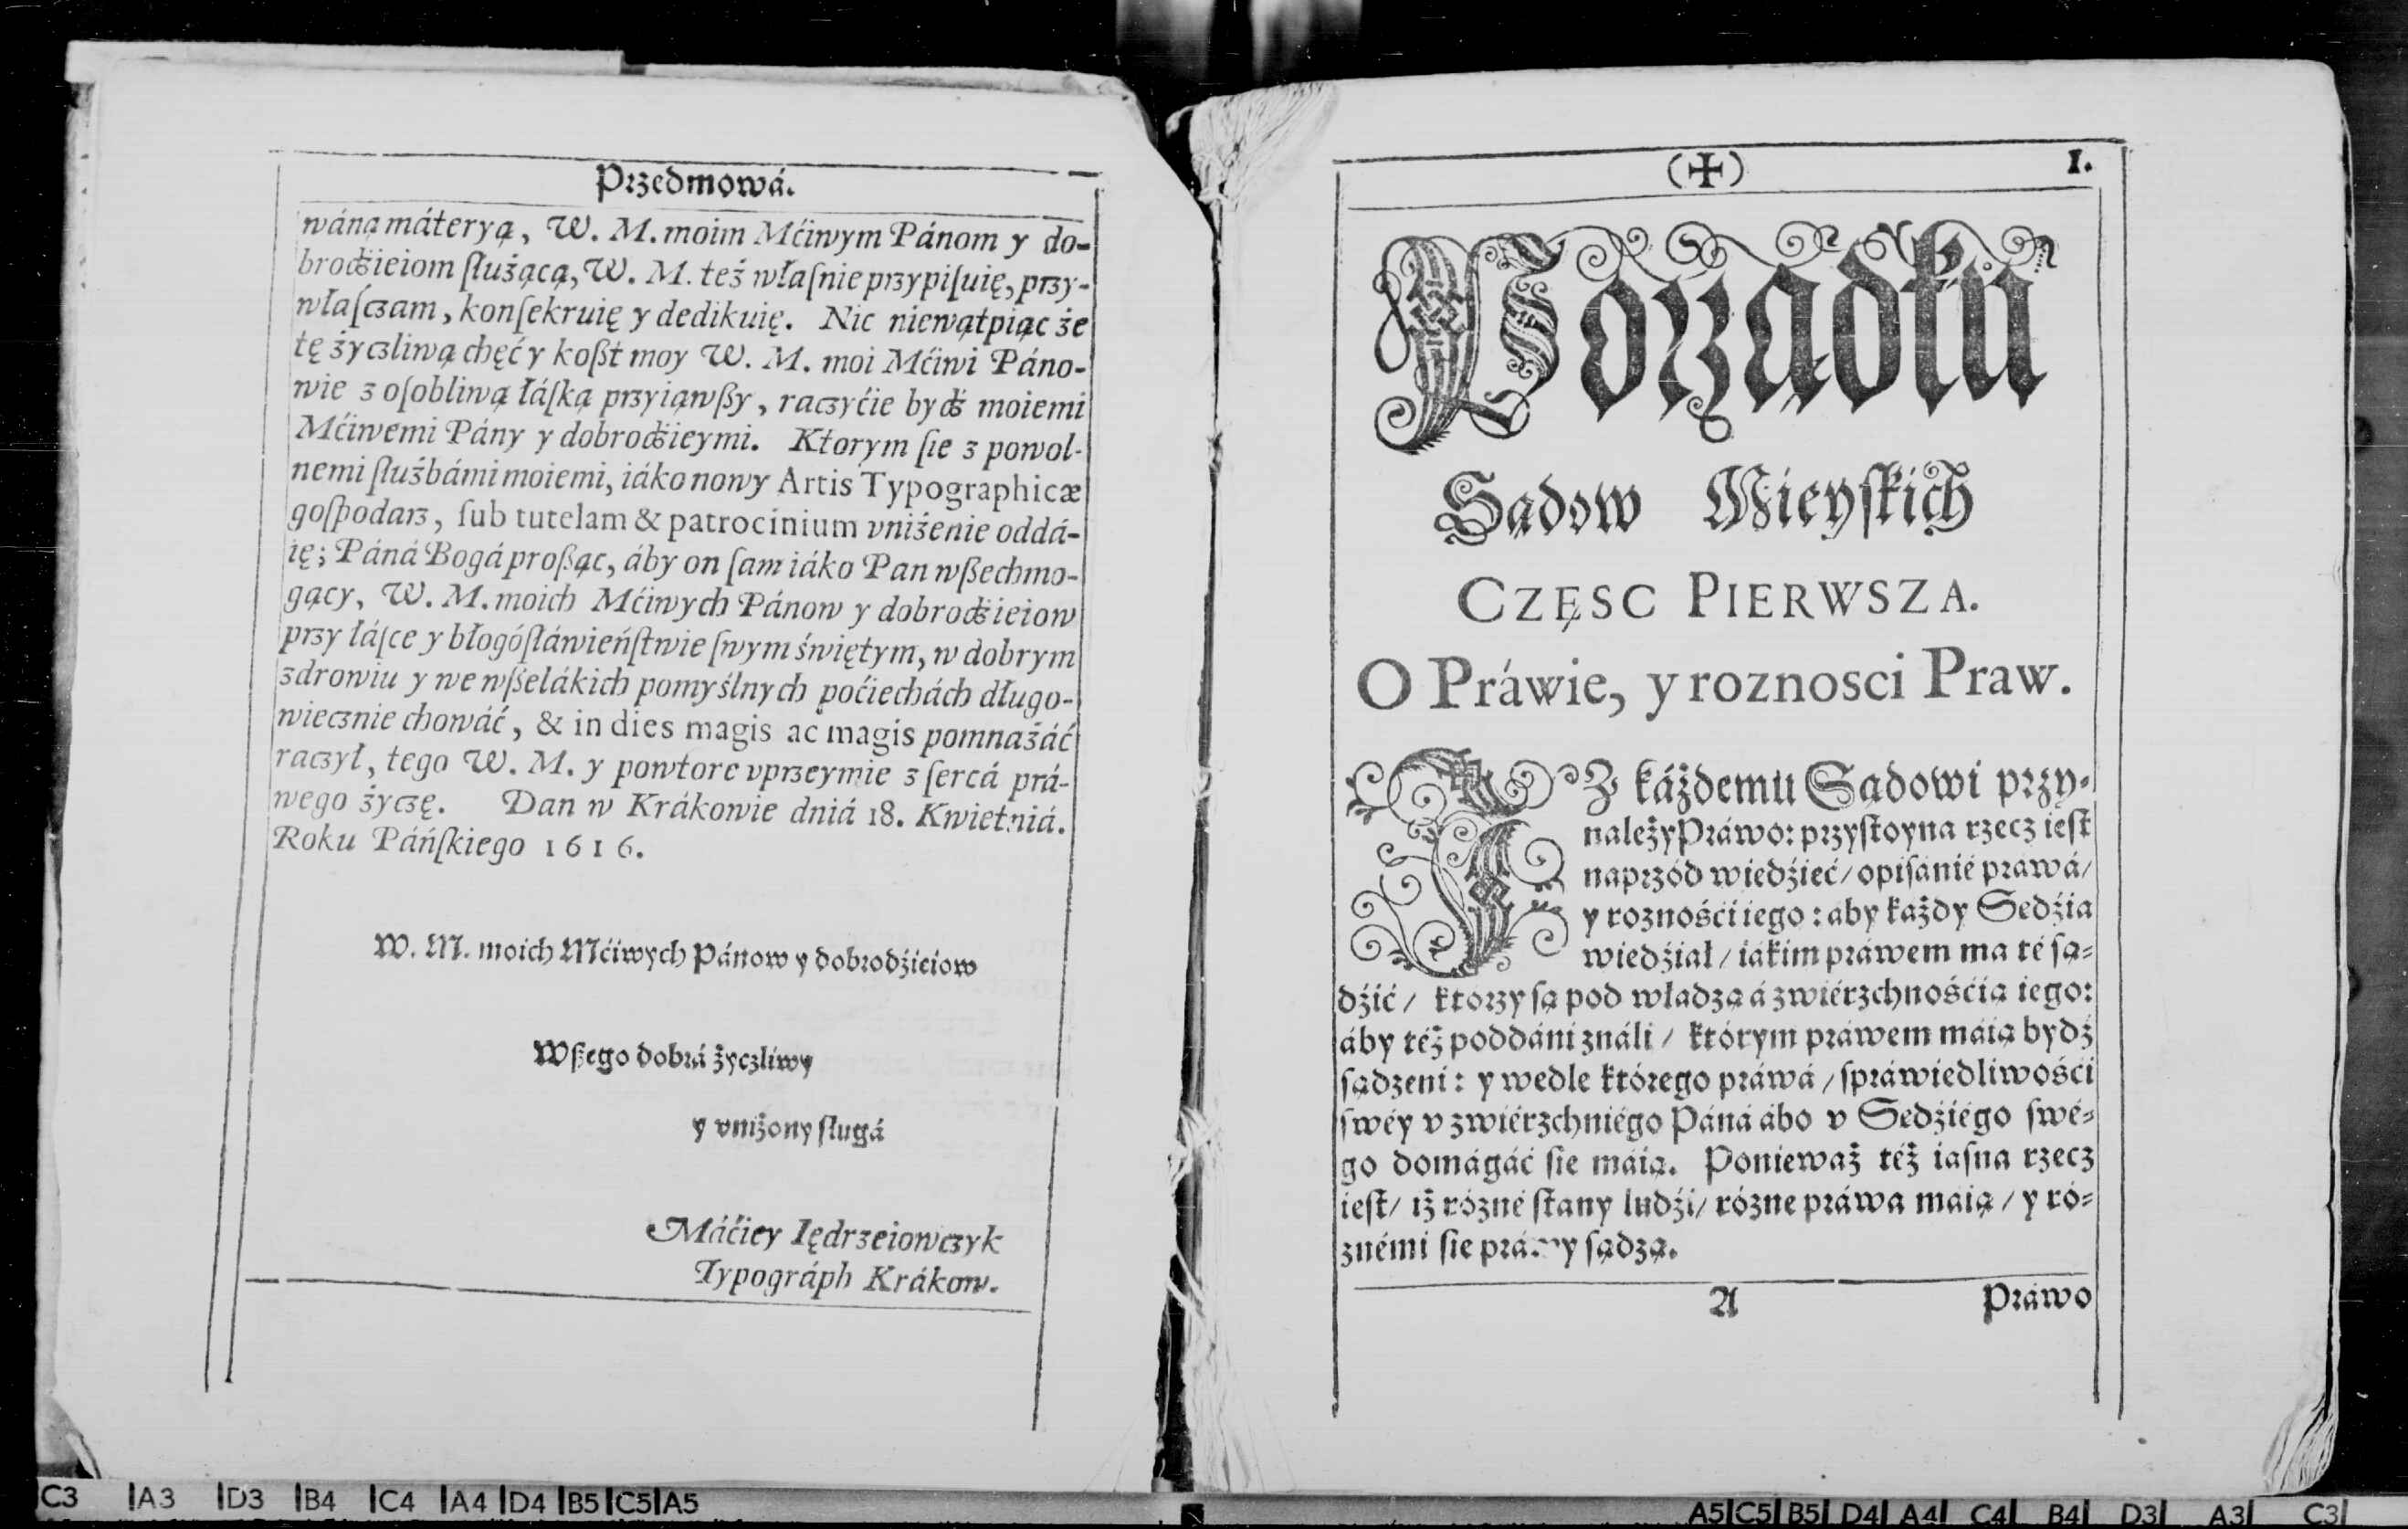 Przedmowá.
wáną máteryą, W. M. moim Mćiwym Pánom y do-
brodźieiom ſłużącą, W. M. też właſnie przypiſuię, przy-
właſczam, konſekruię y dedikuię. Nic niewątpiąc że
tę życzliwą chęć y koßt moy W. M. moi Mćiwi Páno-
wie z oſobliwą łáſką przyiąwßy, raczyćie bydź moiemi
Mćiwemi Pány y dobrodźieymi. Ktorym ſie z powol-
nemi ſłużbámi moiemi, iáko nowy Artis Typographicæ
goſpodarz, ſub tutelam & patrocinium vniżenie oddá-
ię; Páná Bogá proßąc, áby on ſam iáko Pan wßechmo-
gący, W. M. moich Mćiwych Pánow y dobrodźieiow
przy łáſce y błogóſłáwieńſtwie ſwym świętym, w dobrym
zdrowiu y we wßelákich pomyślnych poćiechách długo-
wiecznie chowáć, & in dies magis ac magis pomnażáć
raczył, tego W. M. y powtore vprzeymie z ſercá prá-
wego życzę. Dan w Krákowie dniá 18. Kwietniá.
Roku Páńſkiego 1616.
W. M. moich Mćiwych Pánow y dobrodźieiow
Wßego dobrá życzliwy
y vniżony ſługá
Máćiey Iędrzeiowczyk
Typográph Krákow.
(✠) 1.
Porządku
Sądow Mieyſkich
CZĘSC PIERWSZA.
O Práwie, y roznosci Praw.
IŻ káżdemu Sądowi przy-
należy Práwo: przyſtoyna rzecz ieſt
naprzód wiedźieć/ opiſánié práwá/
y roznośći iego: aby każdy Sedźia
wiedźiał/ iákim práwem ma té ſą-
dźić/ którzy ſą pod władzą á zwiérzchnośćią iego:
áby téż poddániználi/ którym práwem máią bydź
ſądzeni: y wedle którego práwá/ ſpráwiedliwośći
ſwéy v zwiérzchniégo Páná ábo v Sedźiégo ſwé-
go domágáć ſie máią. Ponieważ téż iaſna rzecz
ieſt/ iż rózné ſtany ludźi/ rózne práwa máią/ y ró-
znémi ſie práwy ſądzą.
A Práwo
C3 A3 D3 B4 C4 A4 D4 B5 C5 A5
A5 C5 B5 D4 A4 C4 B4 D3 A3 C3